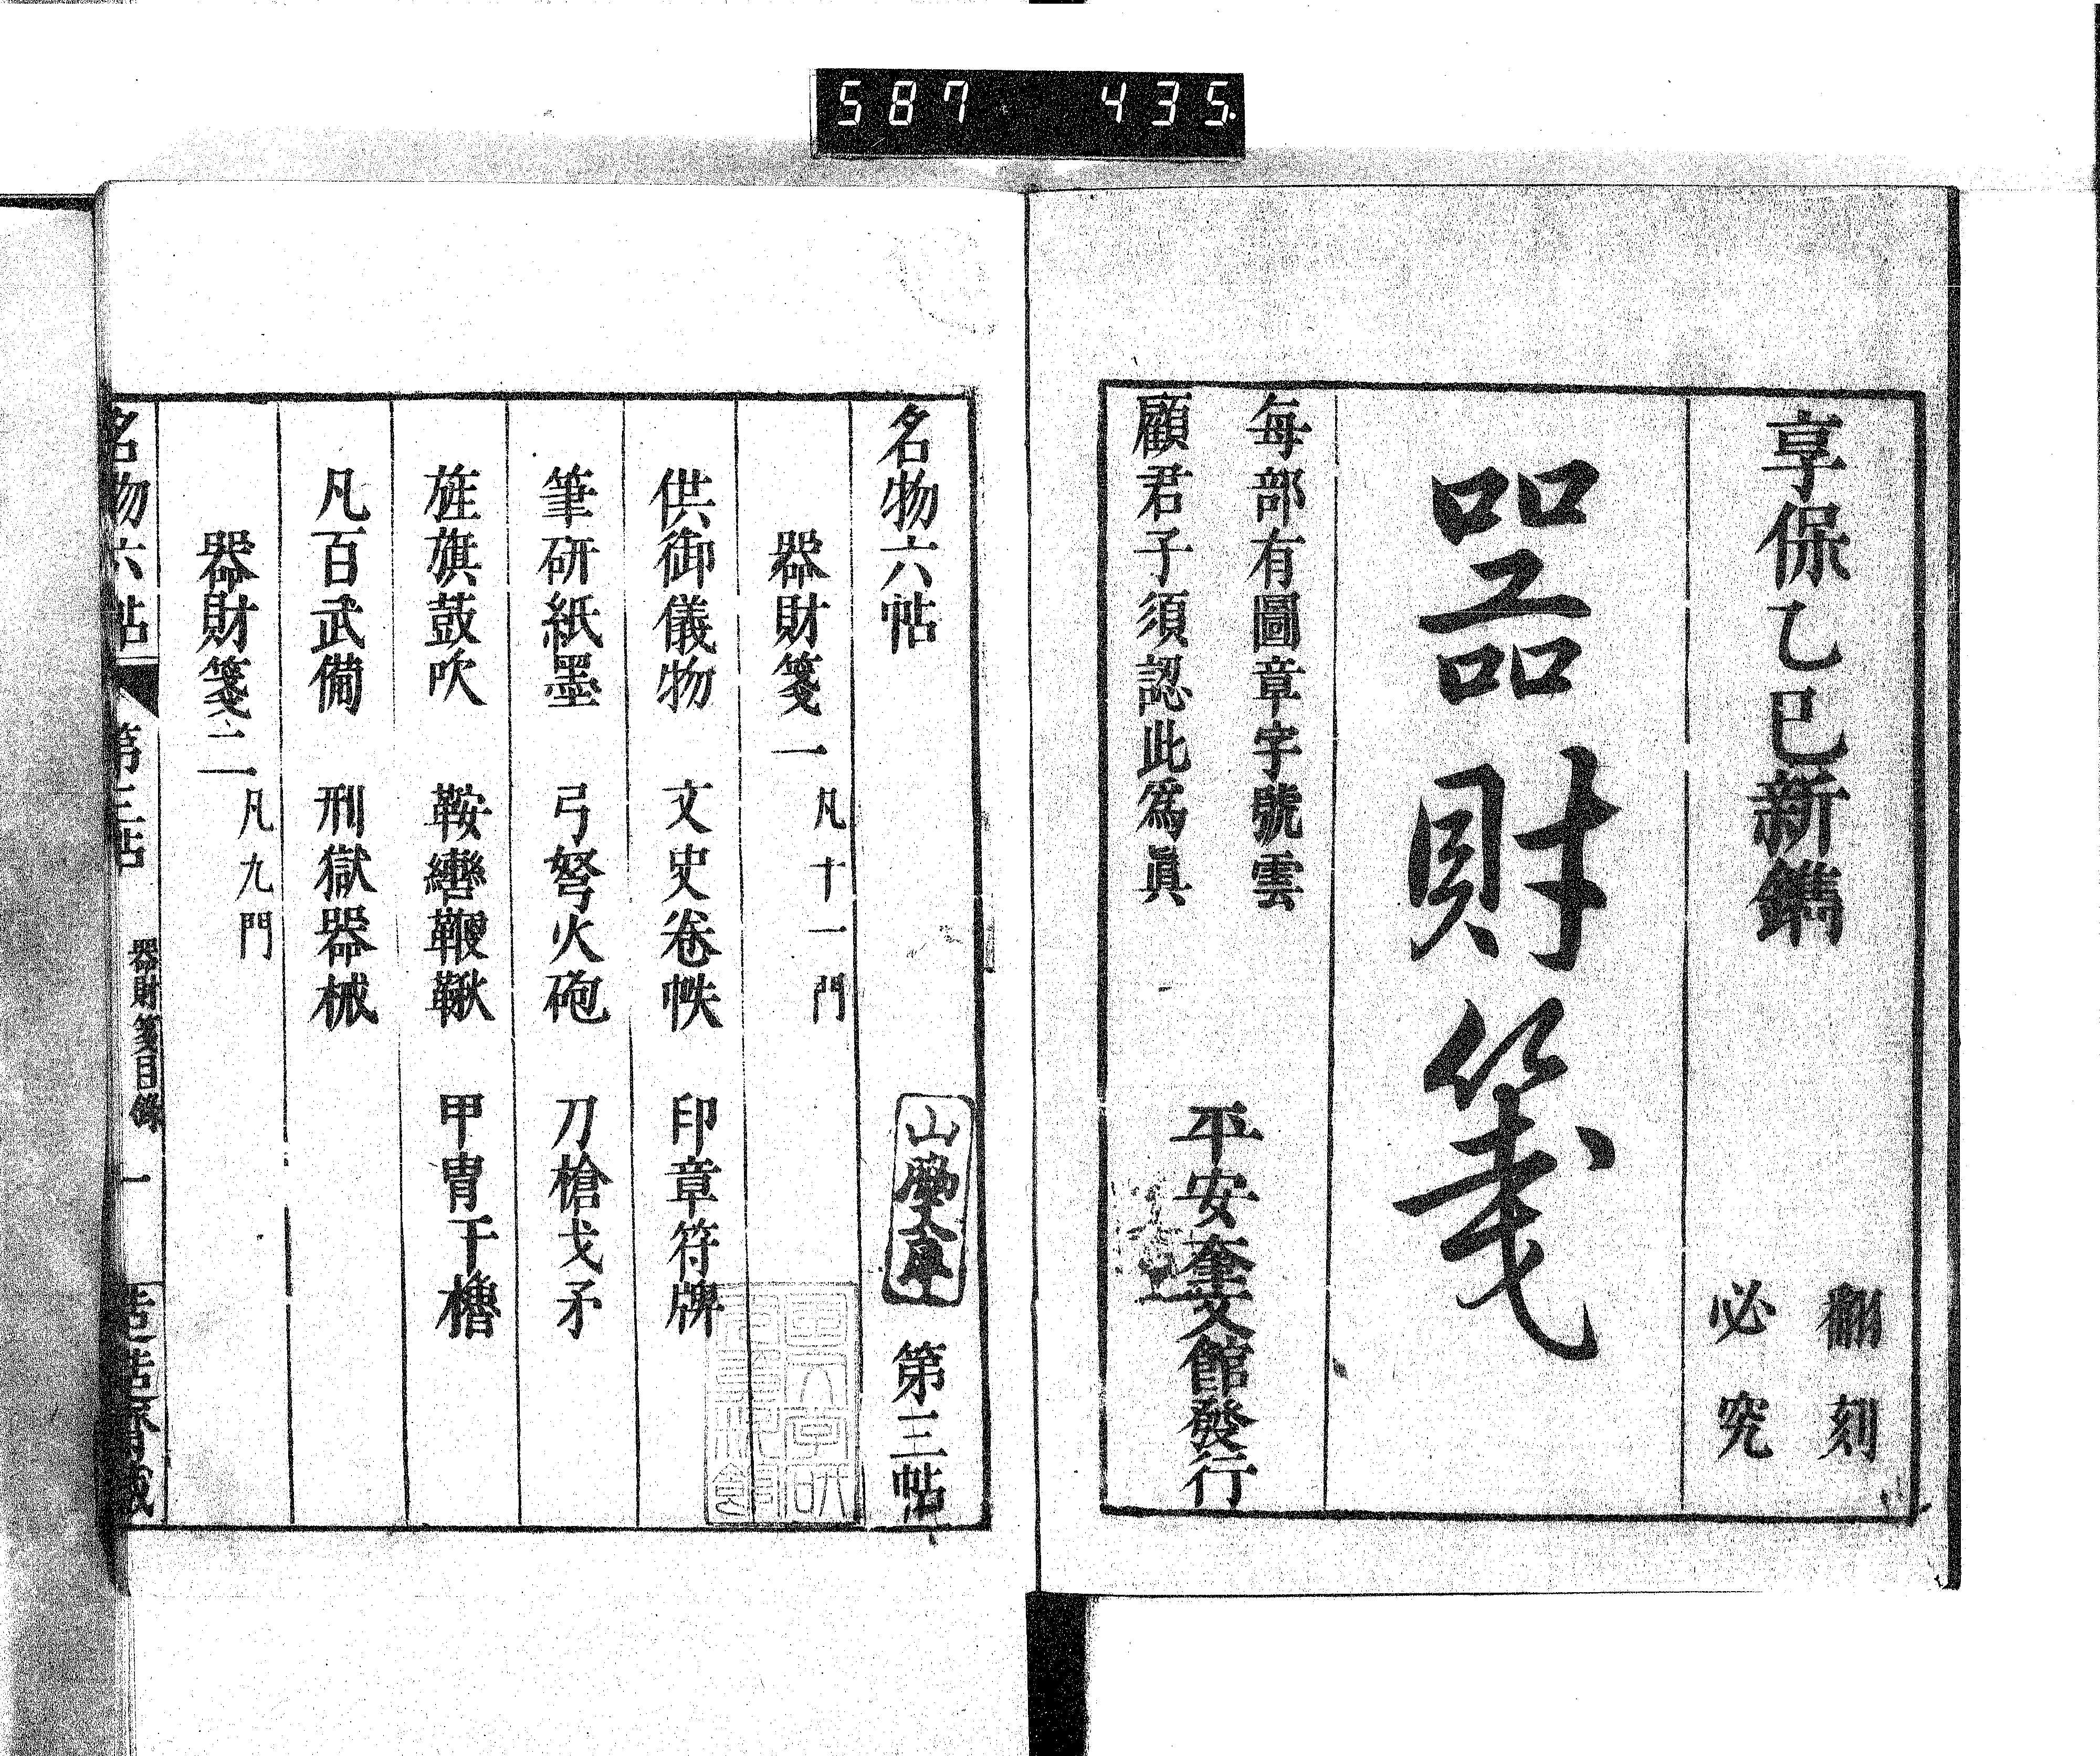 587 435.
享保乙巳新鐫
翻刻
必究
器財箋
每部有圖章字號雲
顧君子須認此爲眞
平安奎文館發行
名物六帖 第三帖
器財箋一 凡十一門
供御儀物 文史卷帙 印章符牌
筆研紙墨 弓弩火砲 刀槍戈矛
旌旗鼓吹 鞍轡鞭鞦 甲冑干櫓
凡百武備 刑獄器械
器財箋二 凡九門
名物六帖 第三帖 器財箋目錄 一